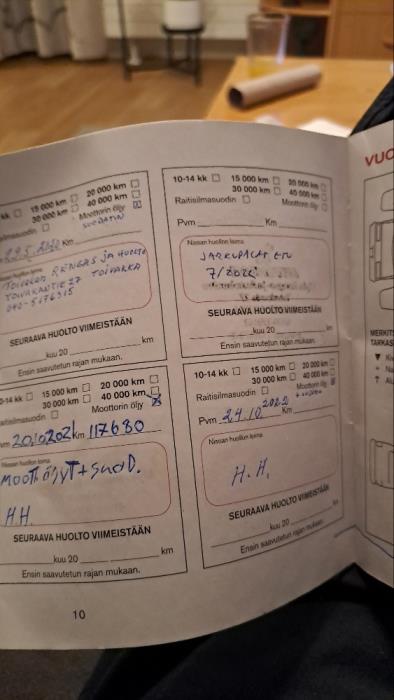 kk 15 000 km 20 000 km
30 000 km 40 000 km
Moottorin öljy
SUODATIN
Km
Nissan huollon leima
TOIVAKAN RENGAS JA HUOLTO
TOIVAKANTIE 27 TOIVAKKA
SEURAAVA HUOLTO VIIMEISTÄÄN
kuu 20 km
Ensin saavutetun rajan mukaan.
10-14 kk 15 000 km 20 000 km
30 000 km 40 000 km
Raitisilmasuodin Moottorin öljy
Pvm Km
Nissan huollon leima
JARRUPALAT ETU
7/2022
SEURAAVA HUOLTO VIIMEISTÄÄN
kuu 20 km
Ensin saavutetun rajan mukaan.
0-14 kk 15 000 km 20 000 km
30 000 km 40 000 km
aitisilmasuodin Moottorin öljy
vm 20.10.202 km 117680
Nissan huollon leima
MOOTT ÖLJYT + SUOD.
HH.
SEURAAVA HUOLTO VIIMEISTÄÄN
kuu 20 km
Ensin saavutetun rajan mukaan.
10-14 kk 15 000 km 20 000 km
30 000 km 40 000 km
Raitisilmasuodin Moottorin öljy
Pvm 24.10 2022 Km
Nissan huollon leima
H.H.
SEURAAVA HUOLTO VIIMEISTÄÄN
kuu 20 km
Ensin saavutetun rajan mukaan.
10
VUO
MERKIT
TARKAS